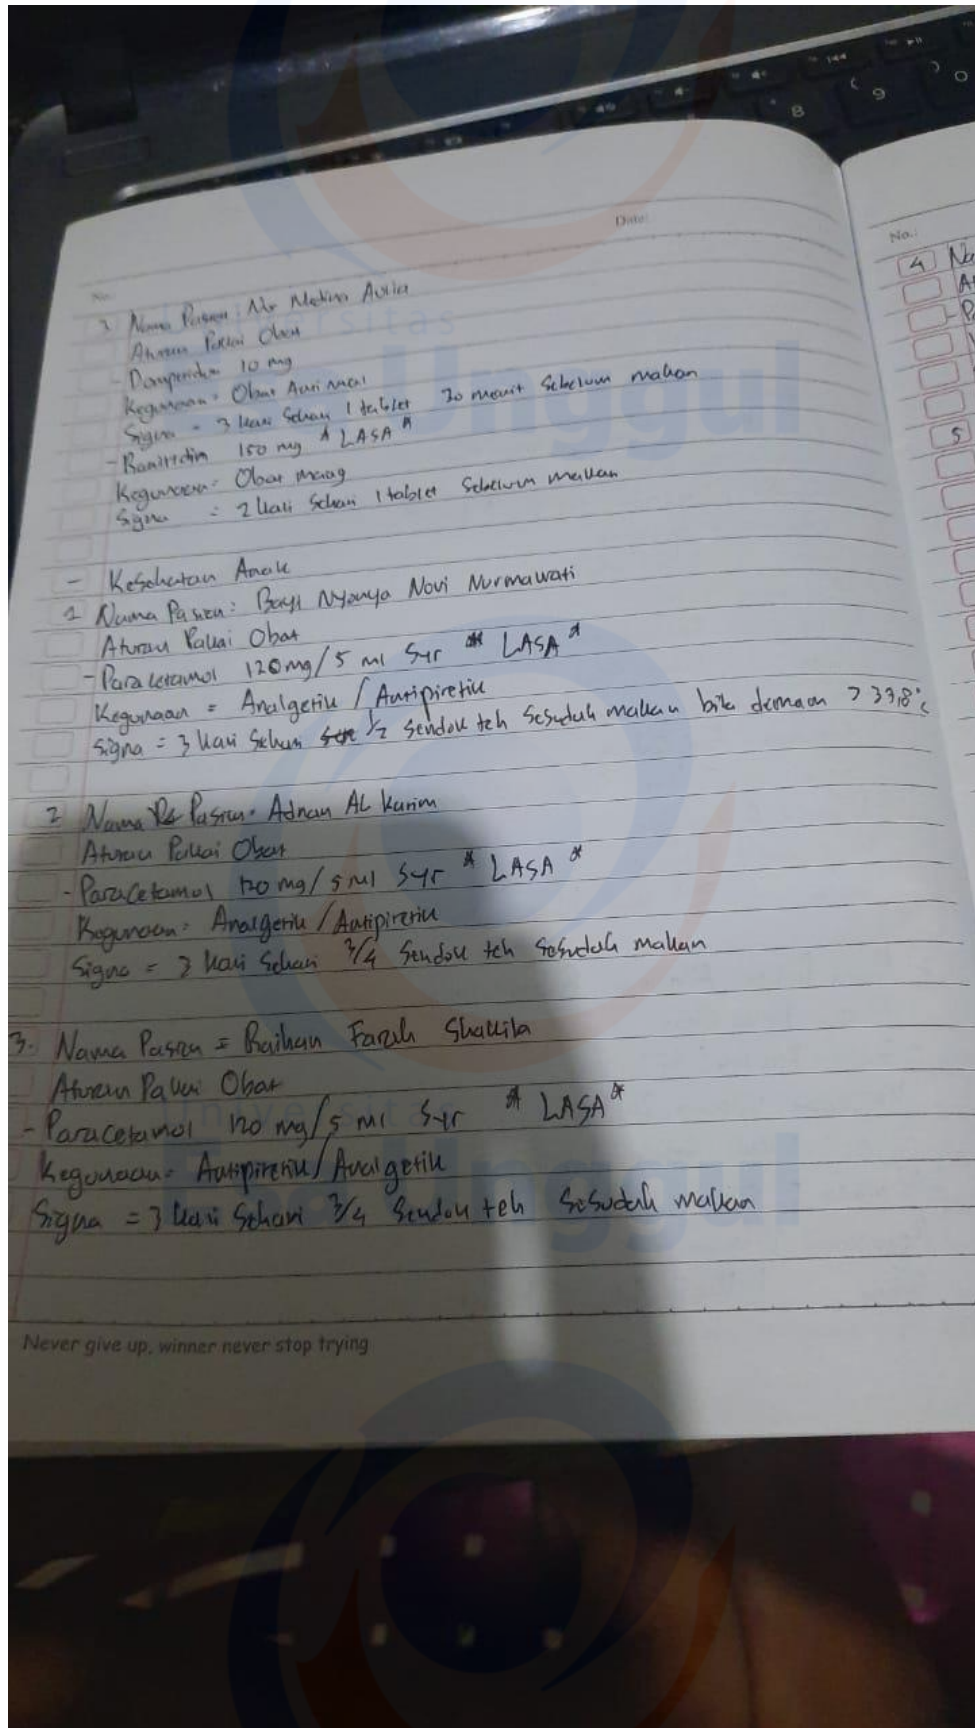 Date:
No.:
3 Nama Pasien : Nr Medina Aulia
Aturan Pakai Obat
- Domperidon 10 mg
Kegunaan = Obat Anti mual
Signa = 3 kali Sehari 1 tablet 30 menit Sebelum makan
- Ranitidin 150 mg * LASA *
Kegunaan = Obat maag
Signa = 2 kali Sehari 1 tablet Sebelum makan
- Kesehatan Anak
1 Nama Pasien : Bayi Nyonya Novi Nurmawati
Aturan Pakai Obat
- Paracetamol 120 mg/5 ml Syr * LASA *
Kegunaan = Analgetik / Antipiretik
Signa = 3 kali Sehari 1/2 Sendok teh Sesudah makan bila demam > 37,8°c
2 Nama Pasien = Adnan AL Karim
Aturan Pakai Obat
- Paracetamol 120 mg/5 ml Syr * LASA *
Kegunaan = Analgetik / Antipiretik
Signa = 3 kali Sehari 3/4 Sendok teh Sesudah makan
3. Nama Pasien = Raihan Farah Shakila
Aturan Pakai Obat
- Paracetamol 120 mg/5 ml Syr * LASA *
Kegunaan = Antipiretik / Analgetik
Signa = 3 kali Sehari 3/4 Sendok teh Sesudah makan
Never give up, winner never stop trying
No.:
4 Na
A
- Pa
5
Universitas
Esa Unggul
Universitas
Esa Unggul
8
9
0